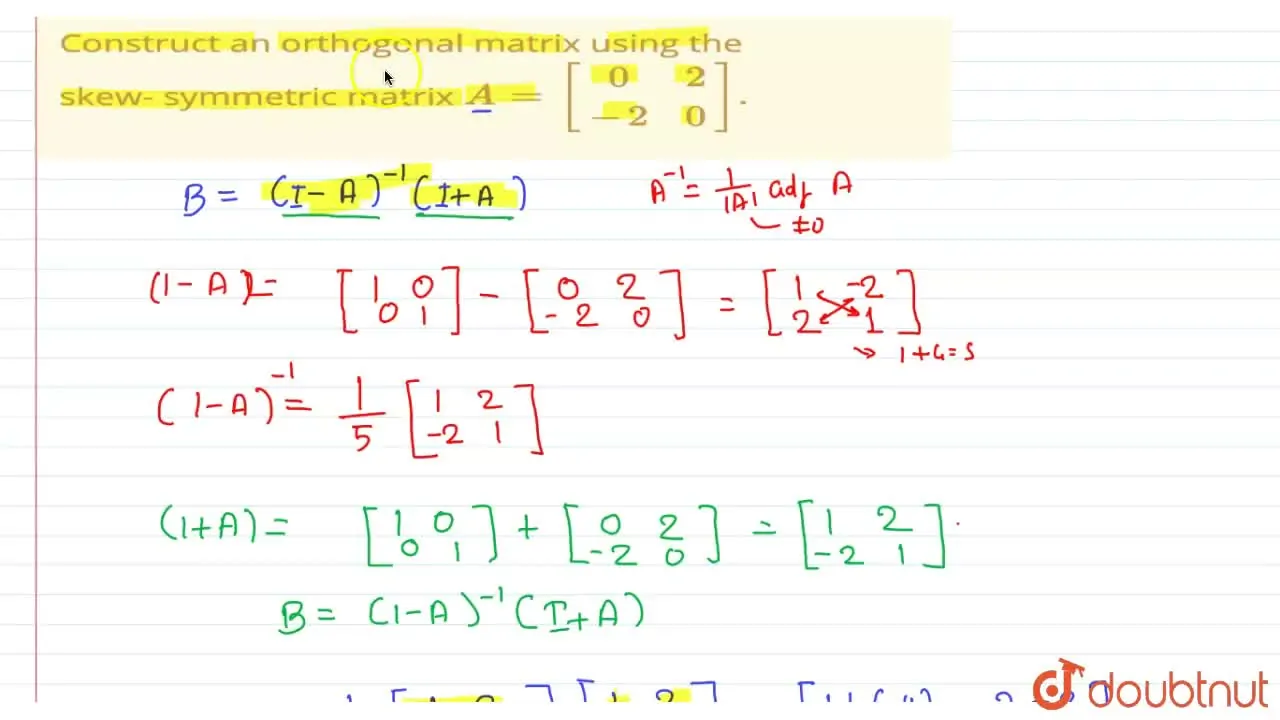 Construct an orthogonal matrix using the
skew- symmetric matrix A = [ 0 2
−2 0 ].
B = (I−A)⁻¹ (I+A) A⁻¹ = 1/|A| adj A
≠0
(1−A) = [ 1 0
0 1 ] − [ 0 2
−2 0 ] = [ 1 −2
2 1 ]
1+4=5
(1−A)⁻¹ = 1/5 [ 1 2
−2 1 ]
(1+A) = [ 1 0
0 1 ] + [ 0 2
−2 0 ] = [ 1 2
−2 1 ].
B = (1−A)⁻¹ (I+A)
doubtnut